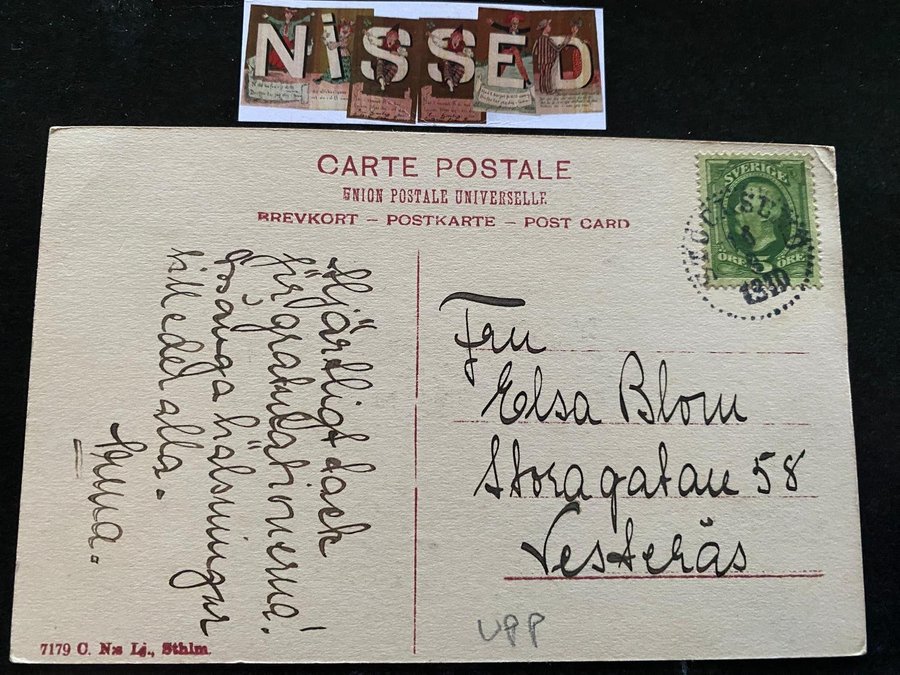 NiSSED
CARTE POSTALE
UNION POSTALE UNIVERSELLE
BREVKORT – POSTKARTE – POST CARD
SVERIGE
5 ÖRE
ÖRE
1910
Hjärtligt tack
för gratulationerna!
många hälsningar
till eder alla.
Anna.
Fru
Elsa Blom
Storagatan 58
Vesterås
UPP
7179 C. N:s Lj., Sthlm.